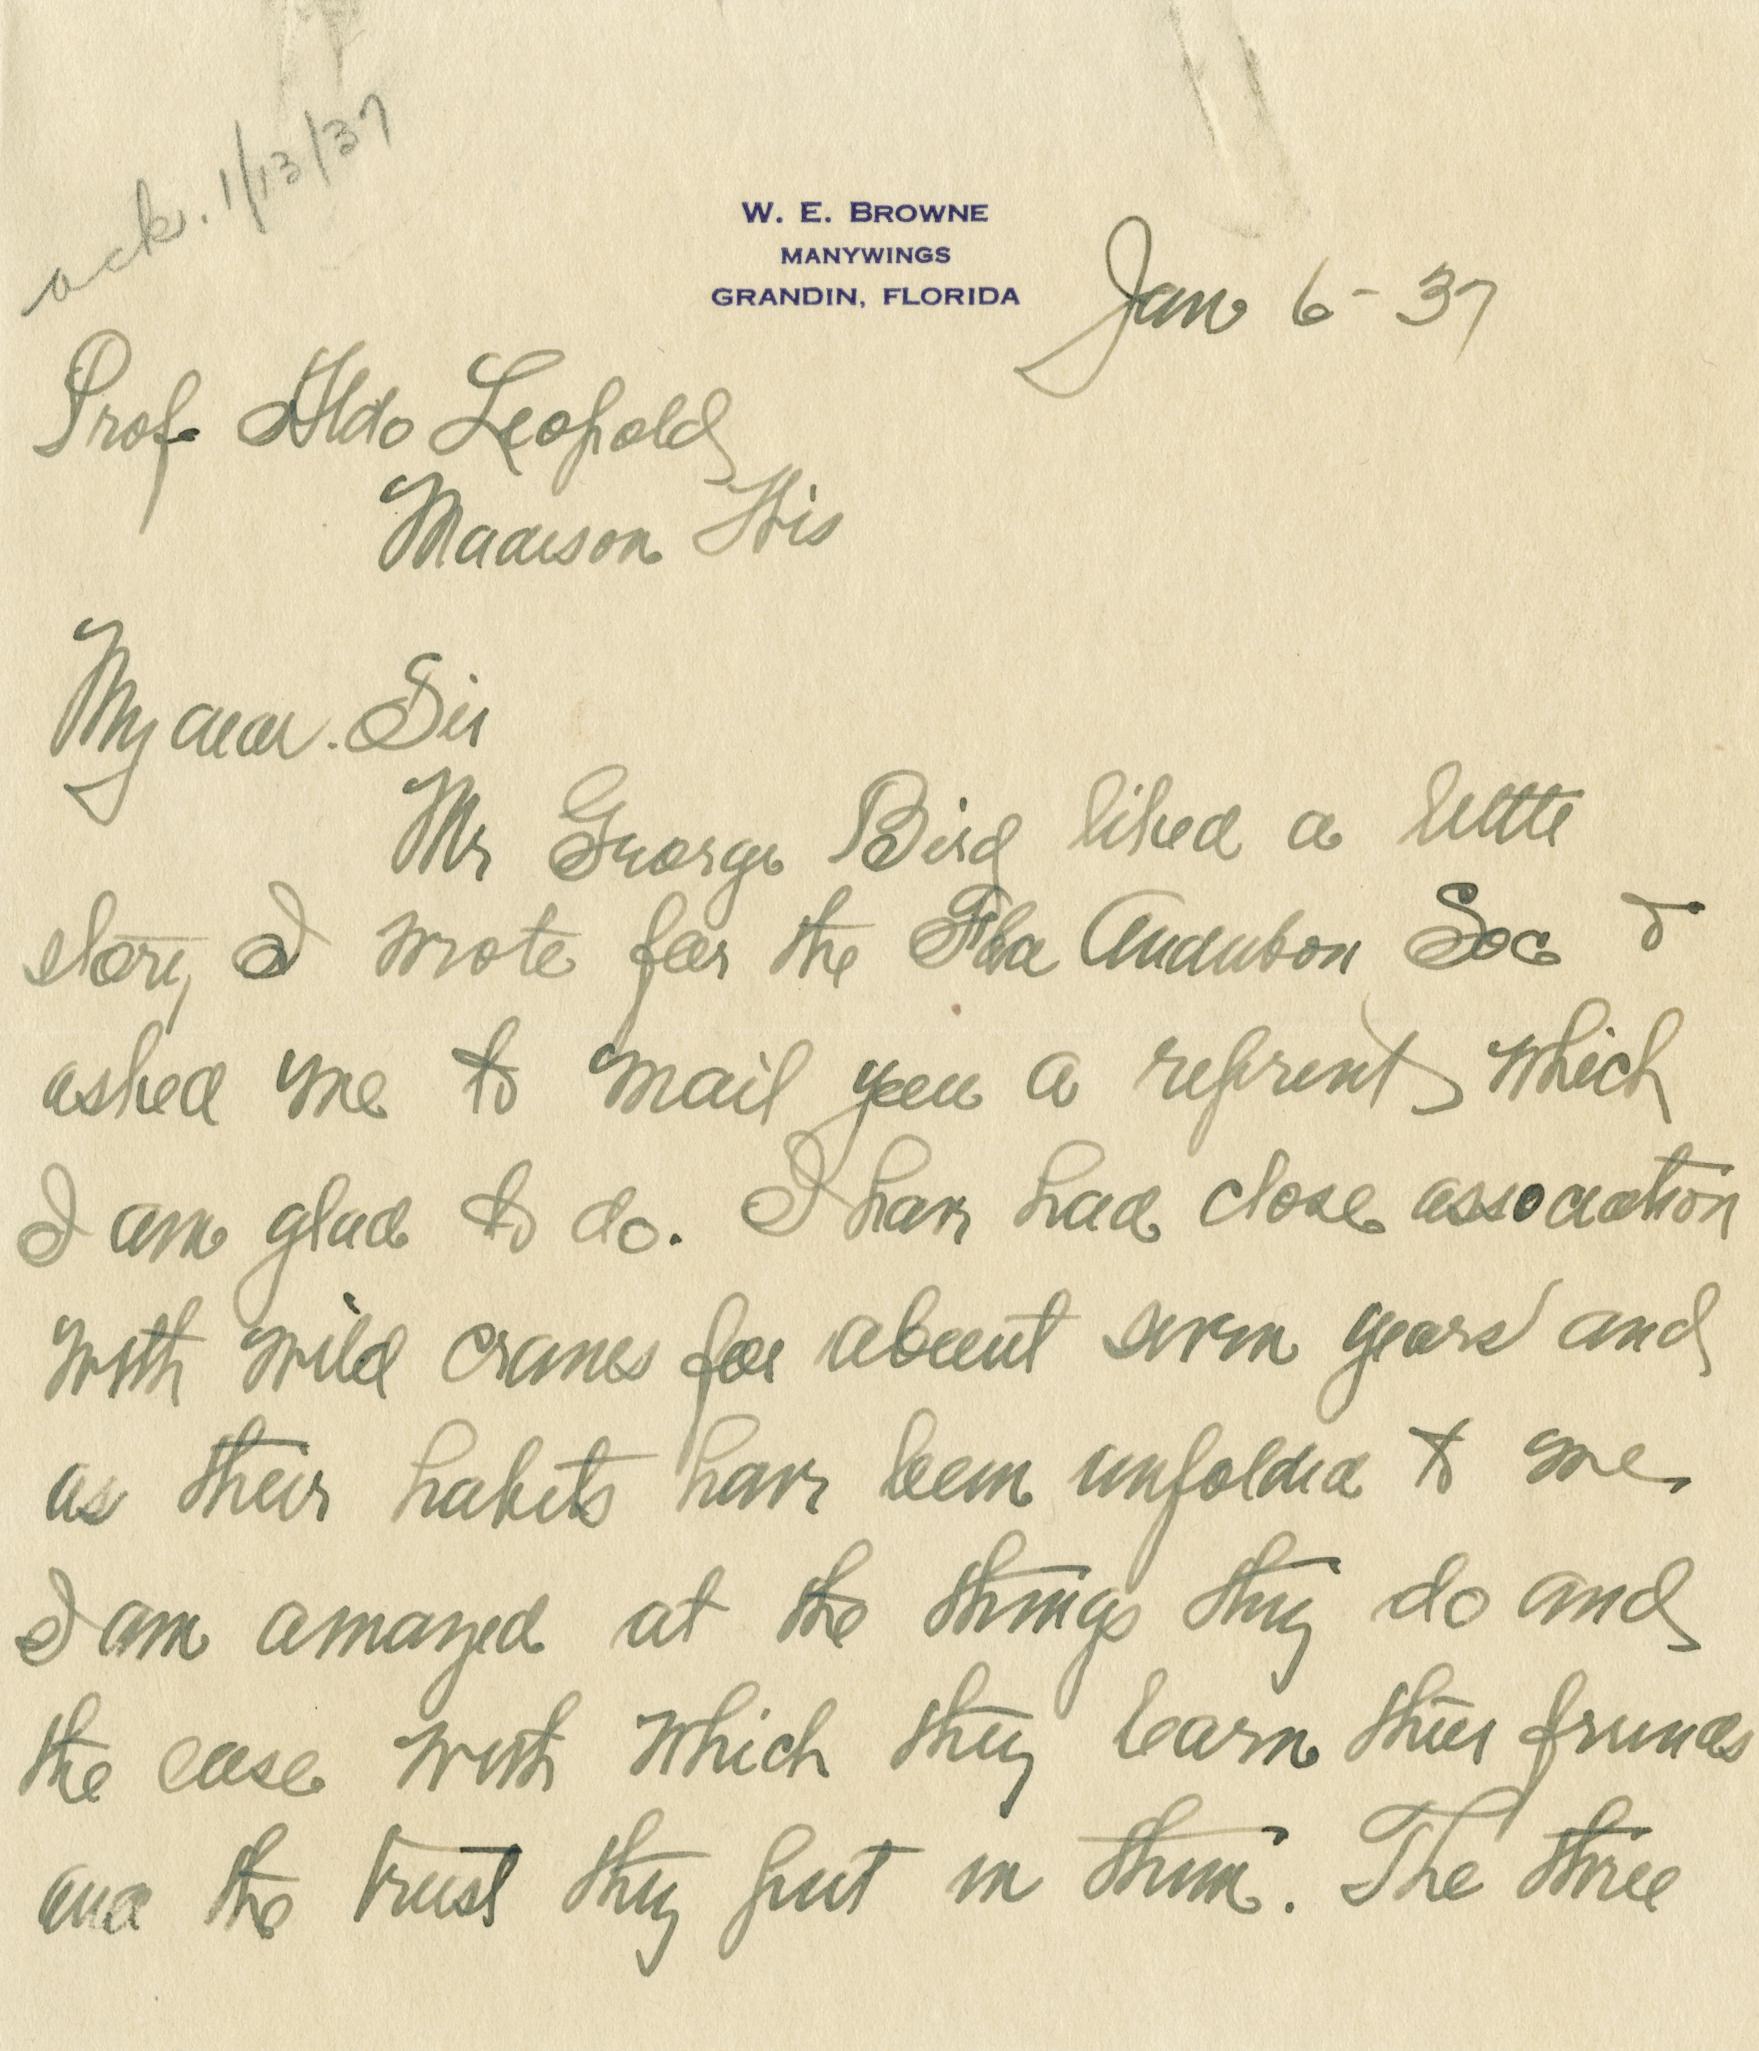 ack. 1/13/37
W. E. BROWNE
MANYWINGS
GRANDIN, FLORIDA
Jan 6 - 37
Prof Aldo Leopold
Madison Wis
My dear Sir
Mr George Bird liked a little
story I wrote for the Fla Audubon Soc &
asked me to mail you a reprint, which
I am glad to do. I have had close association
with wild cranes for about seven years and
as their habits have been unfolded to me
I am amazed at the things they do and
the ease with which they learn their friends
and the trust they put in them. The three